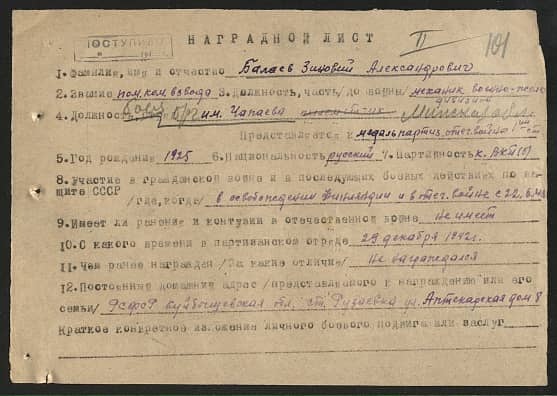 ПОСТУПИЛО
НАГРАДНОЙ ЛИСТ
II 101
1. Фамилия, имя и отчество Балаев Зиновий Александрович
2. Звание пом.ком.взвода 3. Должность, часть/до войны/ механик
4. Должность боец б/г им. Чапаева
Представляется к медаль партиз. отеч. войны ст
5. Год рождения 1925 6. Национальность русский 7. Партийность к. ВКП(б)
8. Участие в гражданской войне и в последующих боевых действиях по за-
щите СССР
/где, когда/ в освобождении Финляндии и в отеч. войне с 22.6.
9. Имеет ли ранение и контузии в отечественной войне не имеет
10. С какого времени в партизанском отряде 29 декабря 1942г.
11. Чем ранее награжден /За какие отличия/ не награждался
12. Постоянный домашний адрес /представляемого к награждению или его
семьи/ РСФСР Куйбышевская обл. ст. Рузаевка ул. Аптекарская дом 8
Краткое конкретное изложение личного боевого подвига или заслуг